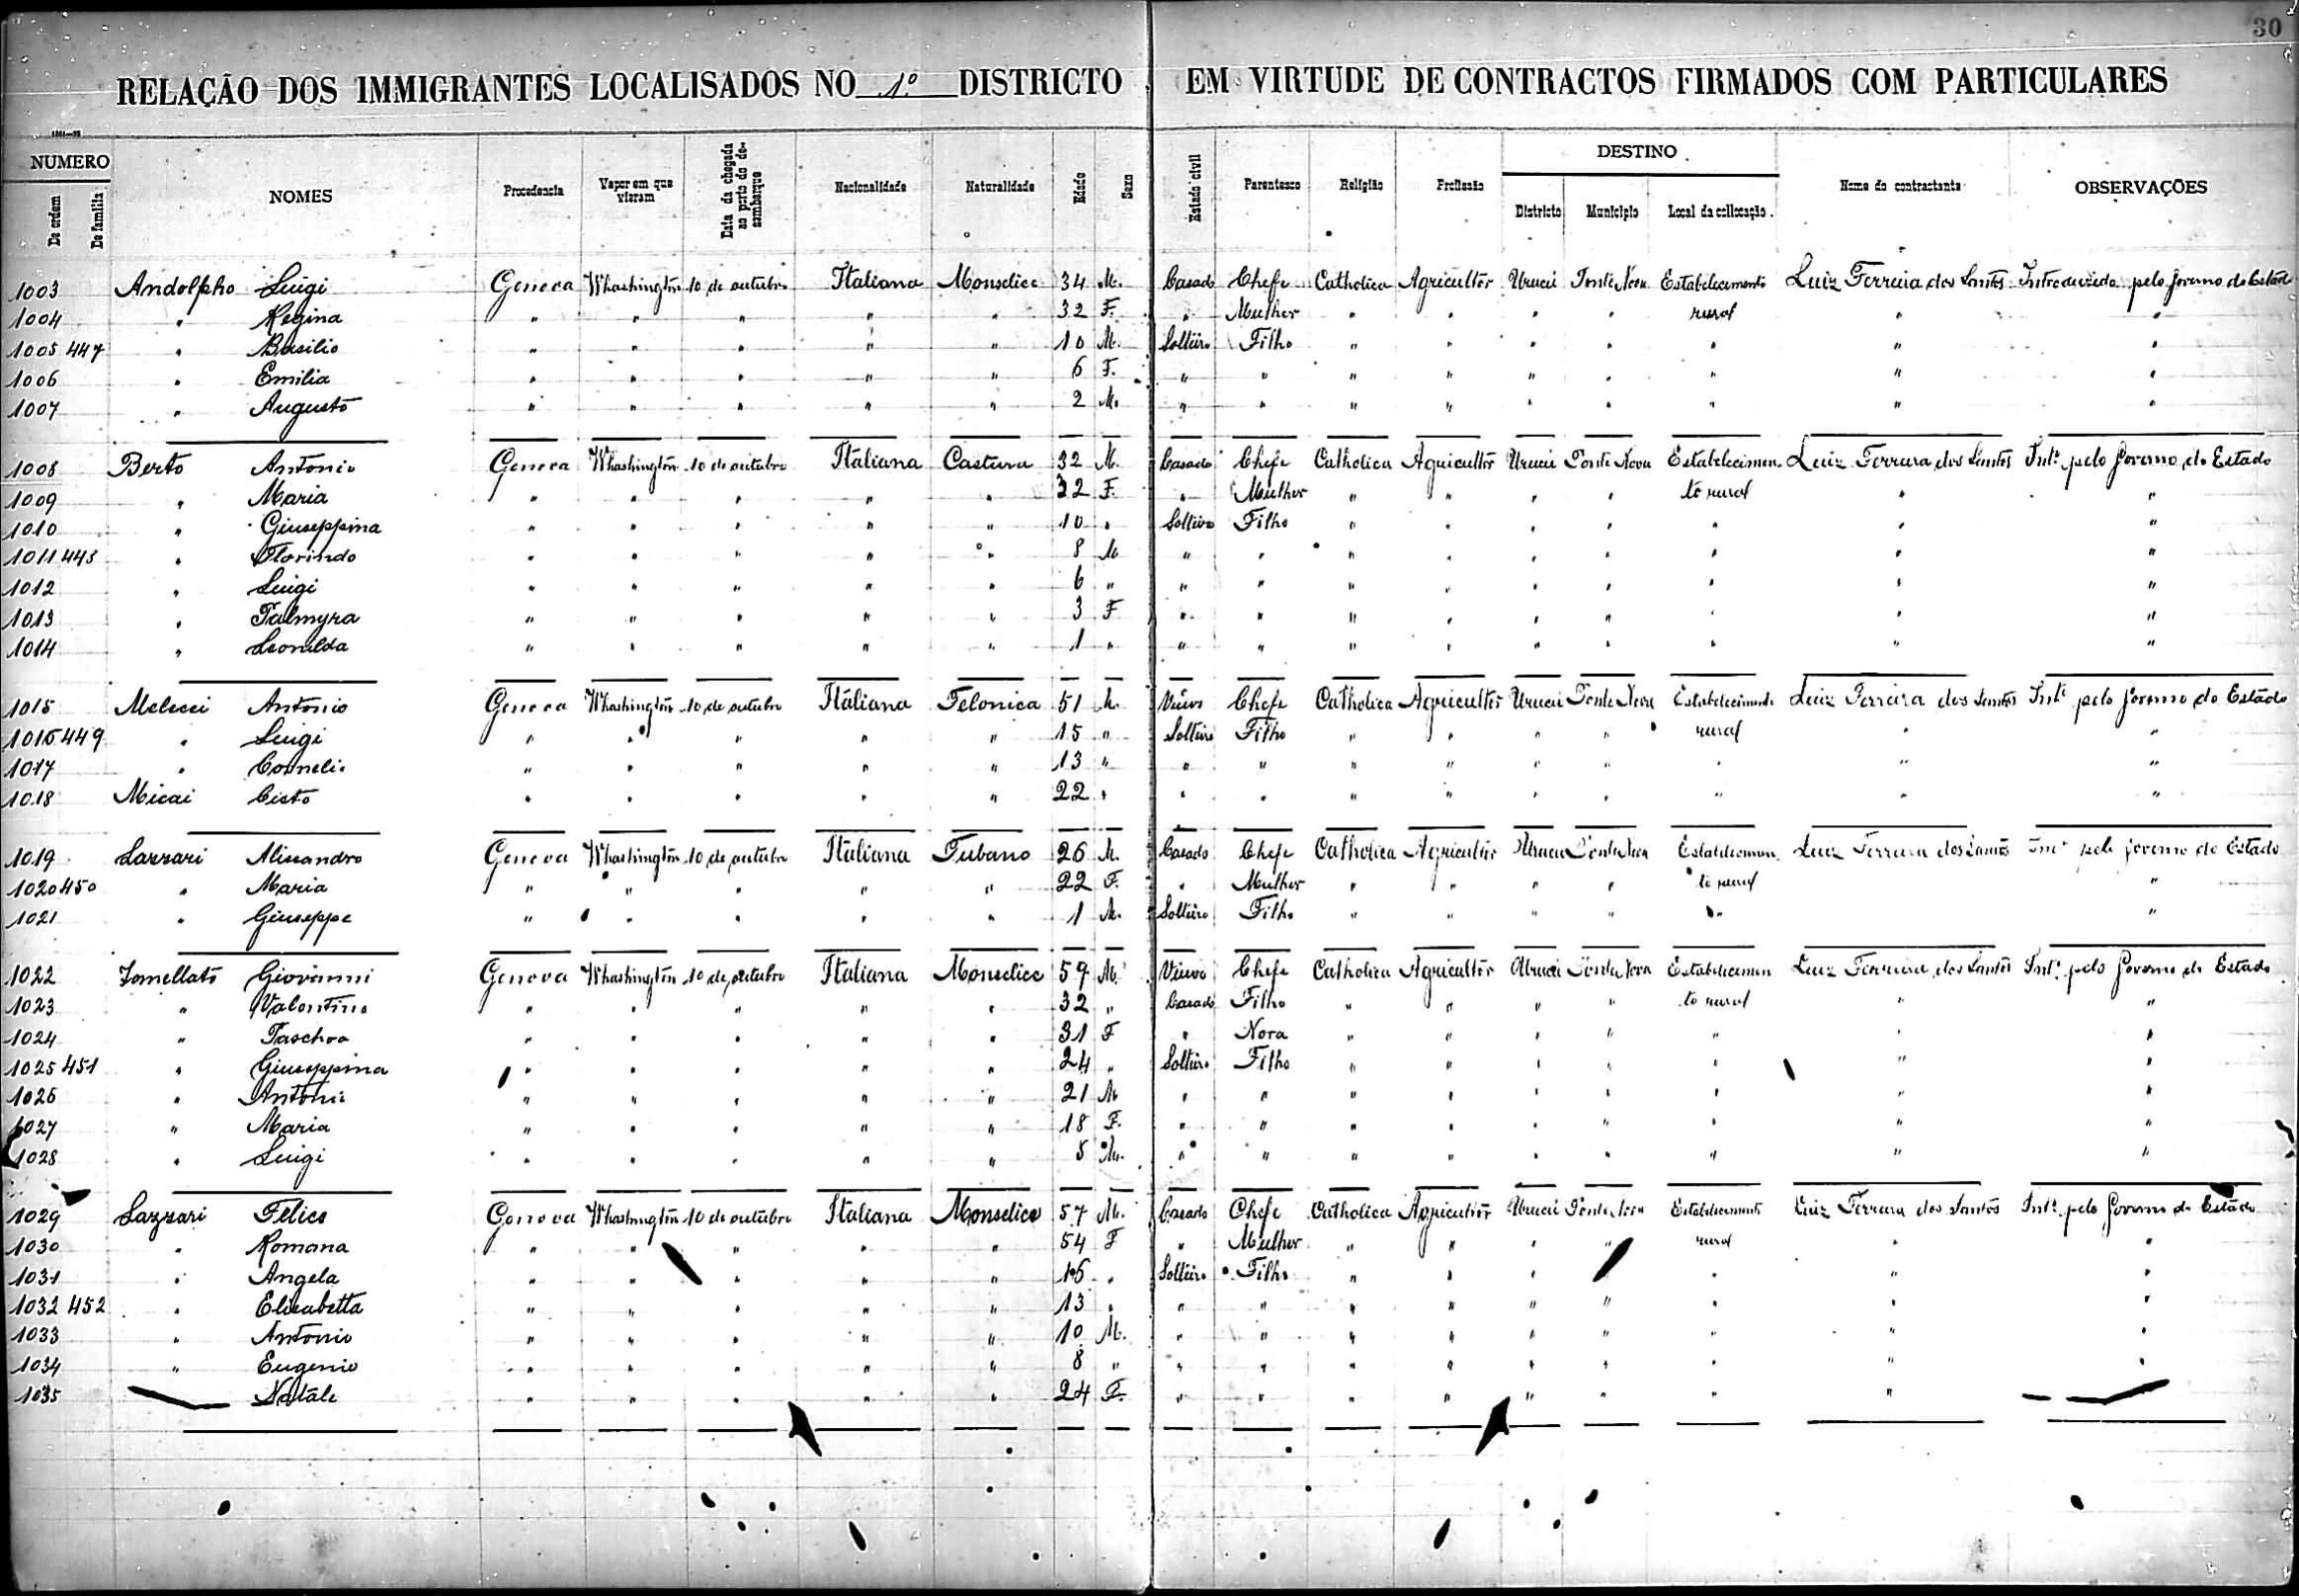 30
RELAÇÃO DOS IMMIGRANTES LOCALISADOS NO 1º DISTRICTO EM VIRTUDE DE CONTRACTOS FIRMADOS COM PARTICULARES
NUMERO DESTINO
De ordem De familia NOMES Procedencia Vapor em que vieram Data da chegada ao porto do desembarque Nacionalidade Naturalidade Edade Sexo Estado civil Parentesco Religião Profissão Districto Municipio Local da collocação Nome do contractante OBSERVAÇÕES
1003 Andolpho Luigi Genova Whashington 10 de outubro Italiana Monselice 34 M. Casado Chefe Catholica Agricultor Urucú Ponte Nova Estabelecimento Luiz Ferreira dos Santos Introduzida pelo Governo do Estado
1004 " Regina " " " " " 32 F. " Mulher " " " " rural " "
1005 447 " Basilio " " " " " 10 M. Solteiro Filho " " " " " " "
1006 " Emilia " " " " " 6 F. " " " " " " " " "
1007 " Augusto " " " " " 2 M. " " " " " " " " "
1008 Berto Antonio Genova Whashington 10 de outubro Italiana Castura 32 M. Casado Chefe Catholica Agricultor Urucú Ponte Nova Estabelecimen Luiz Ferreira dos Santos Intº pelo Governo do Estado
1009 " Maria " " " " " 32 F. " Mulher " " " " to rural " "
1010 " Giuseppina " " " " " 10 " Solteiro Filho " " " " " " "
1011 448 " Florindo " " " " " 8 M " " " " " " " " "
1012 " Luigi " " " " " 6 " " " " " " " " " "
1013 " Palmyra " " " " " 3 F " " " " " " " " "
1014 " Leonilda " " " " " 1 " " " " " " " " " "
1015 Melecci Antonio Genova Whashington 10 de outubro Italiana Felonica 51 M. Viuvo Chefe Catholica Agricultor Urucú Ponte Nova Estabelecimento Luiz Ferreira dos Santos Intº pelo Governo do Estado
1016 449 " Luigi " " " " " 15 " Solteiro Filho " " " " rural " "
1017 " Cornelio " " " " " 13 " " " " " " " " " "
1018 Micai Cisto " " " " " 22 " " " " " " " " " "
1019 Lazzari Alisandro Genova Whashington 10 de outubro Italiana Tubano 26 M. Casado Chefe Catholica Agricultor Urucú Ponte Nova Estabelecimen Luiz Ferreira dos Santos Intº pelo Governo do Estado
1020 450 " Maria " " " " " 22 F. " Mulher " " " " to rural "
1021 " Giuseppe " " " " " 1 M. Solteiro Filho " " " " " "
1022 Tomellato Giovanni Genova Whashington 10 de outubro Italiana Monselice 59 M. Viuvo Chefe Catholica Agricultor Urucú Ponte Nova Estabelecimen Luiz Ferreira dos Santos Intº pelo Governo do Estado
1023 " Valentino " " " " " 32 " Casado Filho " " " " to rural " "
1024 " Paschoa " " " " " 31 F " Nora " " " " " " "
1025 451 " Giuseppina " " " " " 24 " Solteiro Filho " " " " " " "
1026 " Antonio " " " " " 21 M " " " " " " " " "
1027 " Maria " " " " " 18 F. " " " " " " " " "
1028 " Luigi " " " " " 5 M. " " " " " " " " "
1029 Lazzari Felice Genova Whashington 10 de outubro Italiana Monselice 57 M. Casado Chefe Catholica Agricultor Urucú Ponte Nova Estabelecimento Luiz Ferreira dos Santos Intº pelo Governo do Estado
1030 " Romana " " " " " 54 F " Mulher " " " " rural " "
1031 " Angela " " " " " 16 " Solteiro Filho " " " " " "
1032 452 " Elisabetta " " " " " 13 " " " " " " " " " "
1033 " Antonio " " " " " 10 M. " " " " " " " " "
1034 " Eugenio " " " " " 8 " " " " " " " " " "
1035 Natale " " " " " 24 F. " " " " " " " "